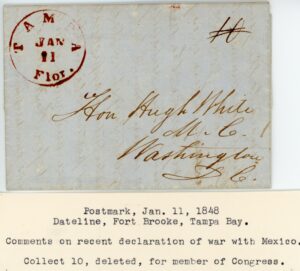 TAMPA
JAN
11
Flor.
10
Hon Hugh White
M. C.
Washington
D. C.
Postmark, Jan. 11, 1848
Dateline, Fort Brooke, Tampa Bay.
Comments on recent declaration of war with Mexico.
Collect 10, deleted, for member of Congress.